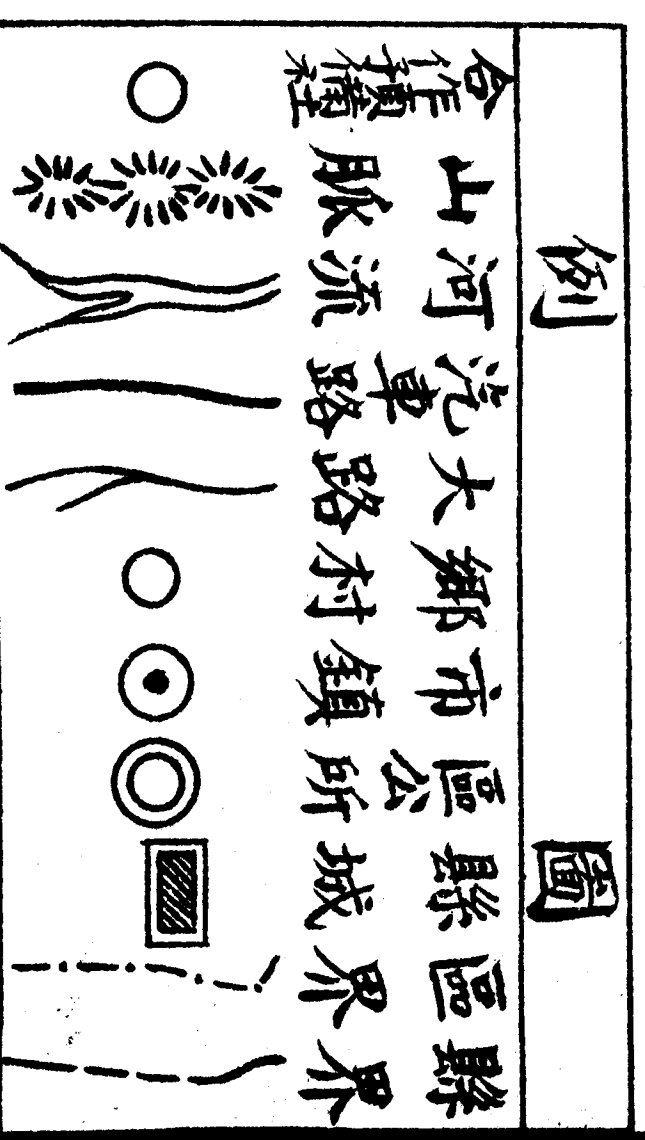 圖例
縣界
區界
縣城
區公所
市鎮
鄉村
大路
汽車路
河流
山脈
合作